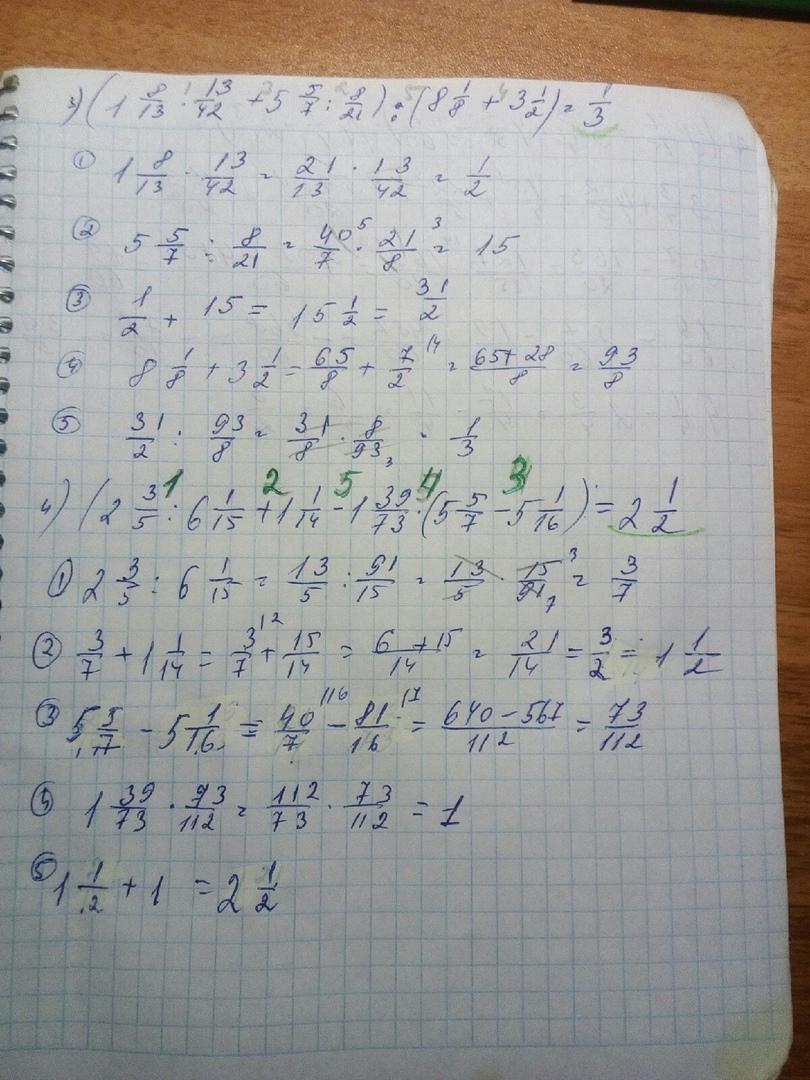 3) (1 8/13 · 13/42 + 5 5/7 : 8/21) : (8 1/8 + 3 1/2) = 1/3
① 1 8/13 · 13/42 = 21/13 · 13/42 = 1/2
② 5 5/7 : 8/21 = 40/7 5 · 21/8 3 = 15
③ 1/2 + 15 = 15 1/2 = 31/2
④ 8 1/8 + 3 1/2 = 65/8 + 7/2 |4 = 65+28/8 = 93/8
⑤ 31/2 : 93/8 = 31/8 · 8/93 3 = 1/3
1 2 5 4 3
4) (2 3/5 : 6 1/15 + 1 1/14 - 1 39/73 · (5 5/7 - 5 1/16) = 2 1/2
① 2 3/5 : 6 1/15 = 13/5 : 91/15 = 13/5 · 15/91 3 7 = 3/7
② 3/7 + 1 1/14 = 3/7 |2 + 15/14 = 6+15/14 = 21/14 = 3/2 = 1 1/2
③ 5 5/7 - 5 1/16 = 40/7 |16 - 81/16 |7 = 640-567/112 = 73/112
④ 1 39/73 · 73/112 = 112/73 · 73/112 = 1
⑤ 1 1/2 + 1 = 2 1/2